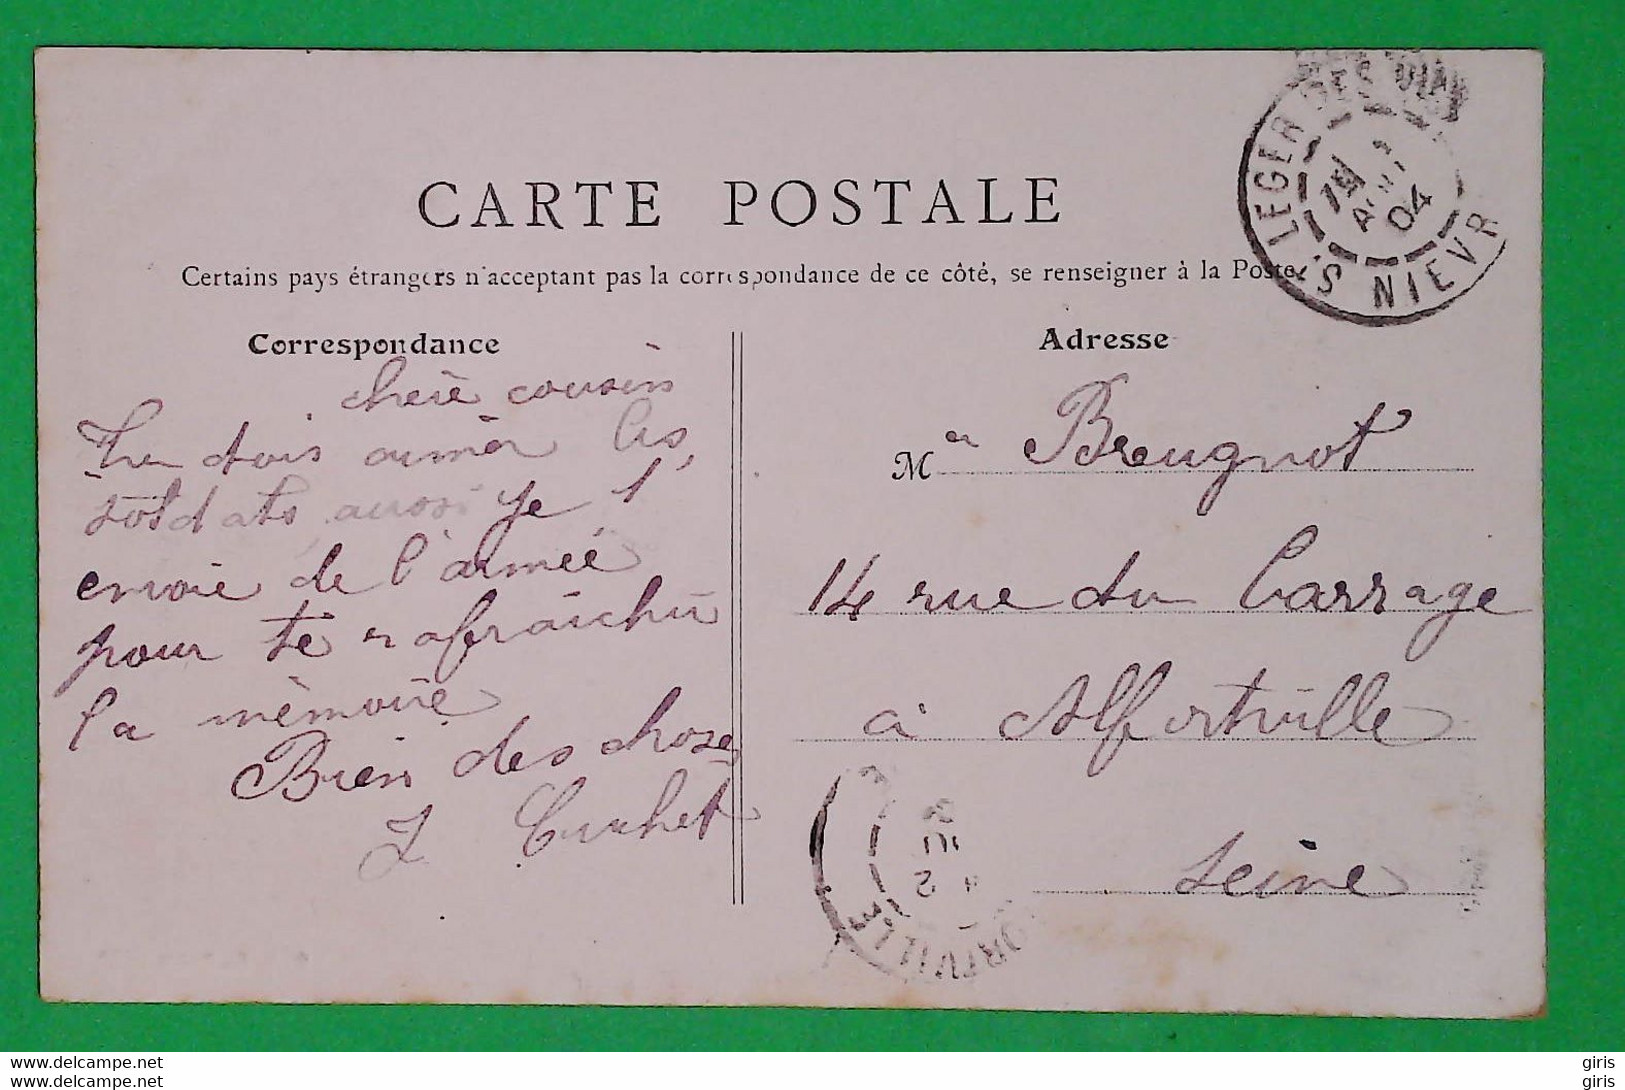 CARTE POSTALE
Certains pays étrangers n'acceptent pas la correspondance de ce côté, se renseigner à la Poste.
Correspondance
chere cousin
Tu dois aimer les
soldats aussi je t'
envoie de l'armée
pour te rafraichir
la mémoire
Bien des choses
Adresse
Mr Breugnot
14 rue du Carrage
à Alfortville
Seine
ST LEGER DES NIEVR
AOUT
04
ORTVILLE
www.delcampe.net giris
www.delcampe.net giris